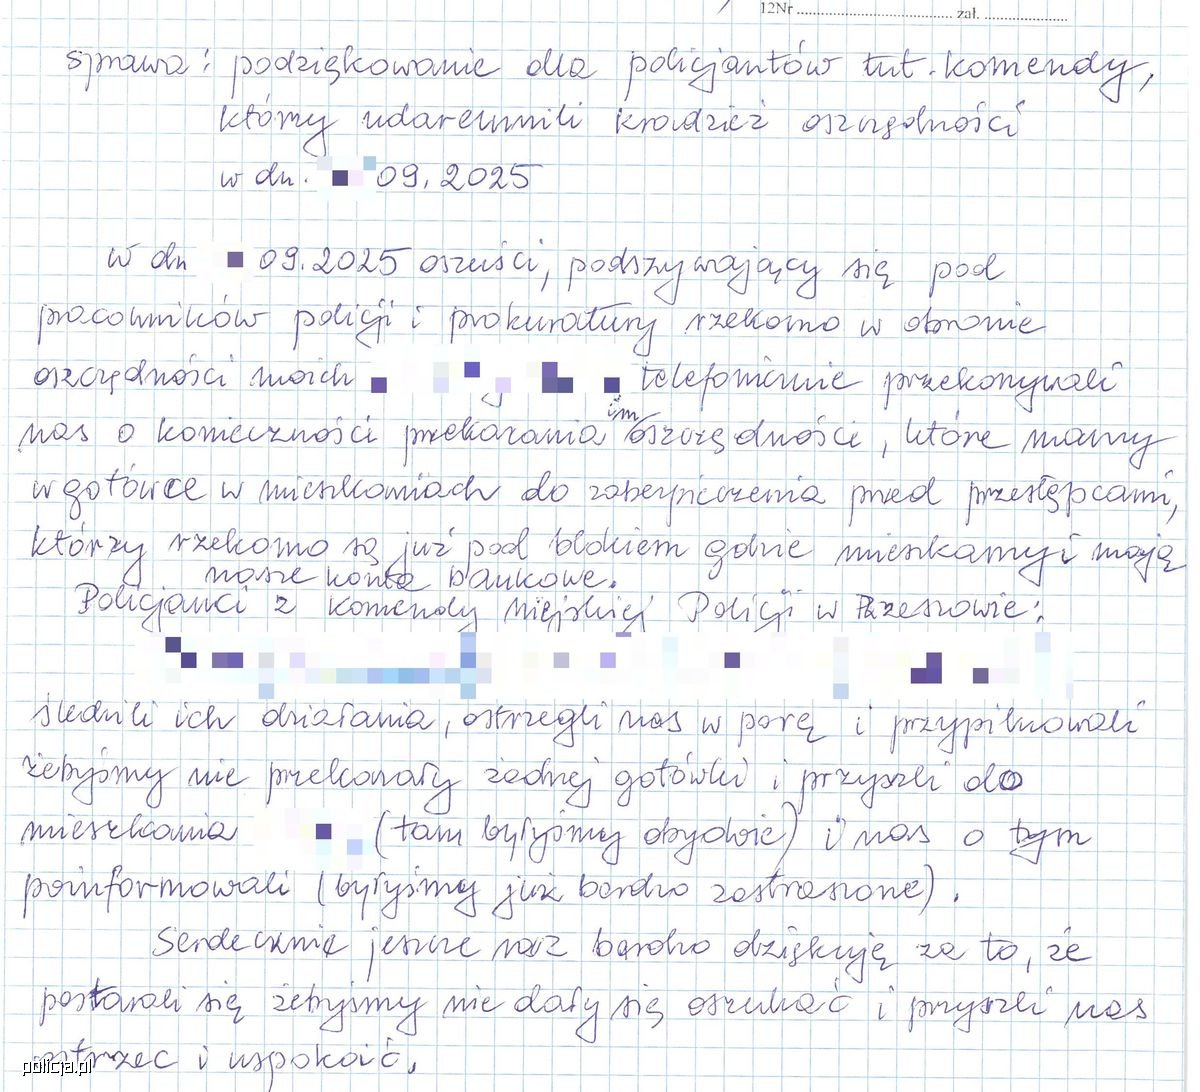 12Nr ........................................ zał. .....................
sprawa: podziękowanie dla policjantów tut. komendy,
którzy udaremnili kradzież oszczędności
w dn. 09.2025
w dn 09.2025 oszuści, podszywający się pod
pracowników policji i prokuratury rzekomo w obronie
oszczędności moich telefonicznie przekonywali
nas o konieczności przekazania im oszczędności, które mamy
w gotówce w mieszkaniach do zabezpieczenia przed przestępcami,
którzy rzekomo są już pod blokiem gdzie mieszkamy i mają
nasze konta bankowe.
Policjanci z komendy miejskiej Policji w Rzeszowie:
śledzili ich działania, ostrzegli nas w porę i przypilnowali
żebyśmy nie przekazały żadnej gotówki i przyszli do
mieszkania (tam byłyśmy obydwie) i nas o tym
poinformowali (byłyśmy już bardzo zastraszone).
Serdecznie jeszcze raz bardzo dziękuję za to, że
postarali się żebyśmy nie dały się oszukać i przyszli nas
ostrzec i uspokoić.
policja.pl